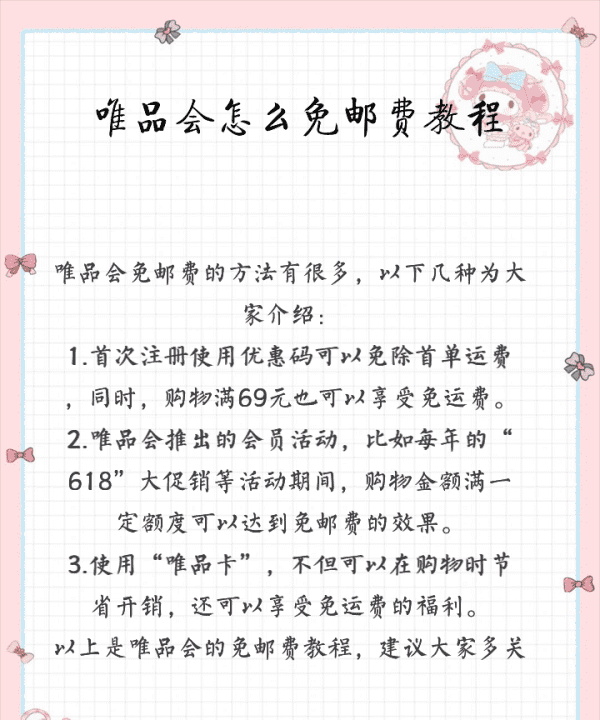 唯品会怎么免邮费教程
唯品会免邮费的方法有很多，以下几种为大
家介绍：
1.首次注册使用优惠码可以免除首单运费
，同时，购物满69元也可以享受免运费。
2.唯品会推出的会员活动，比如每年的“
618”大促销等活动期间，购物金额满一
定额度可以达到免邮费的效果。
3.使用“唯品卡”，不但可以在购物时节
省开销，还可以享受免运费的福利。
以上是唯品会的免邮费教程，建议大家多关